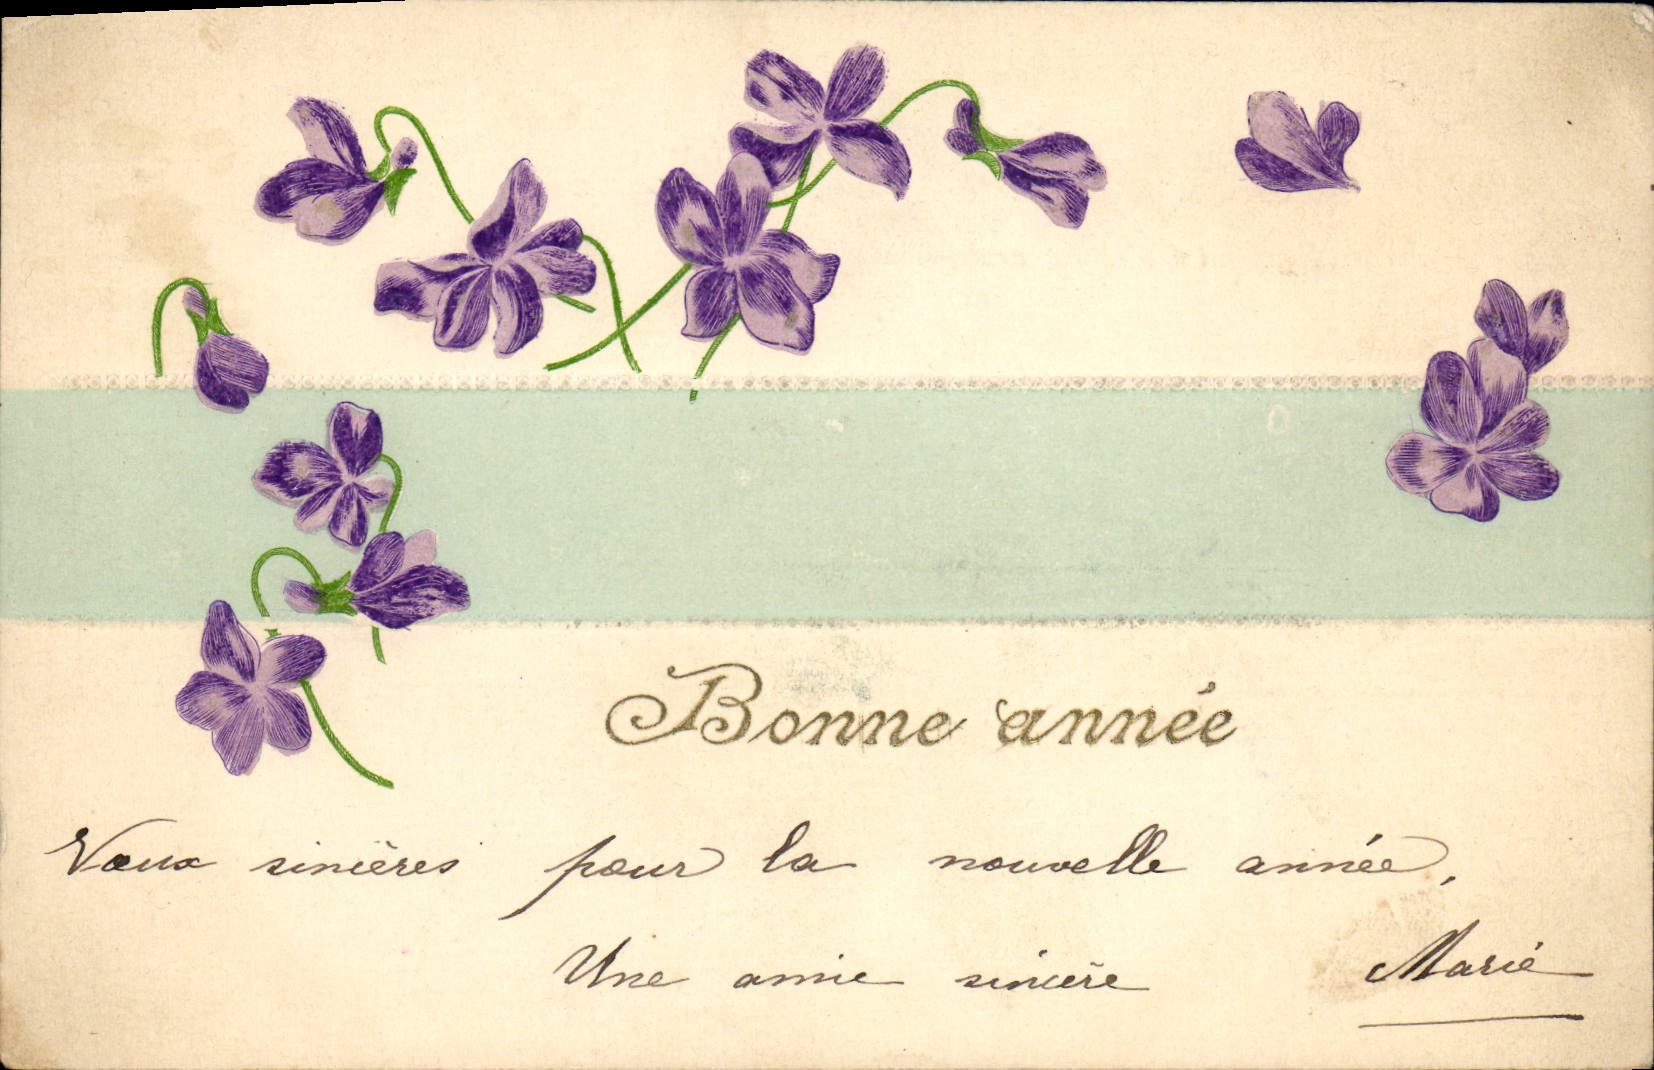 Bonne année
Vœux sincères pour la nouvelle année,
Une amie sincère Marie